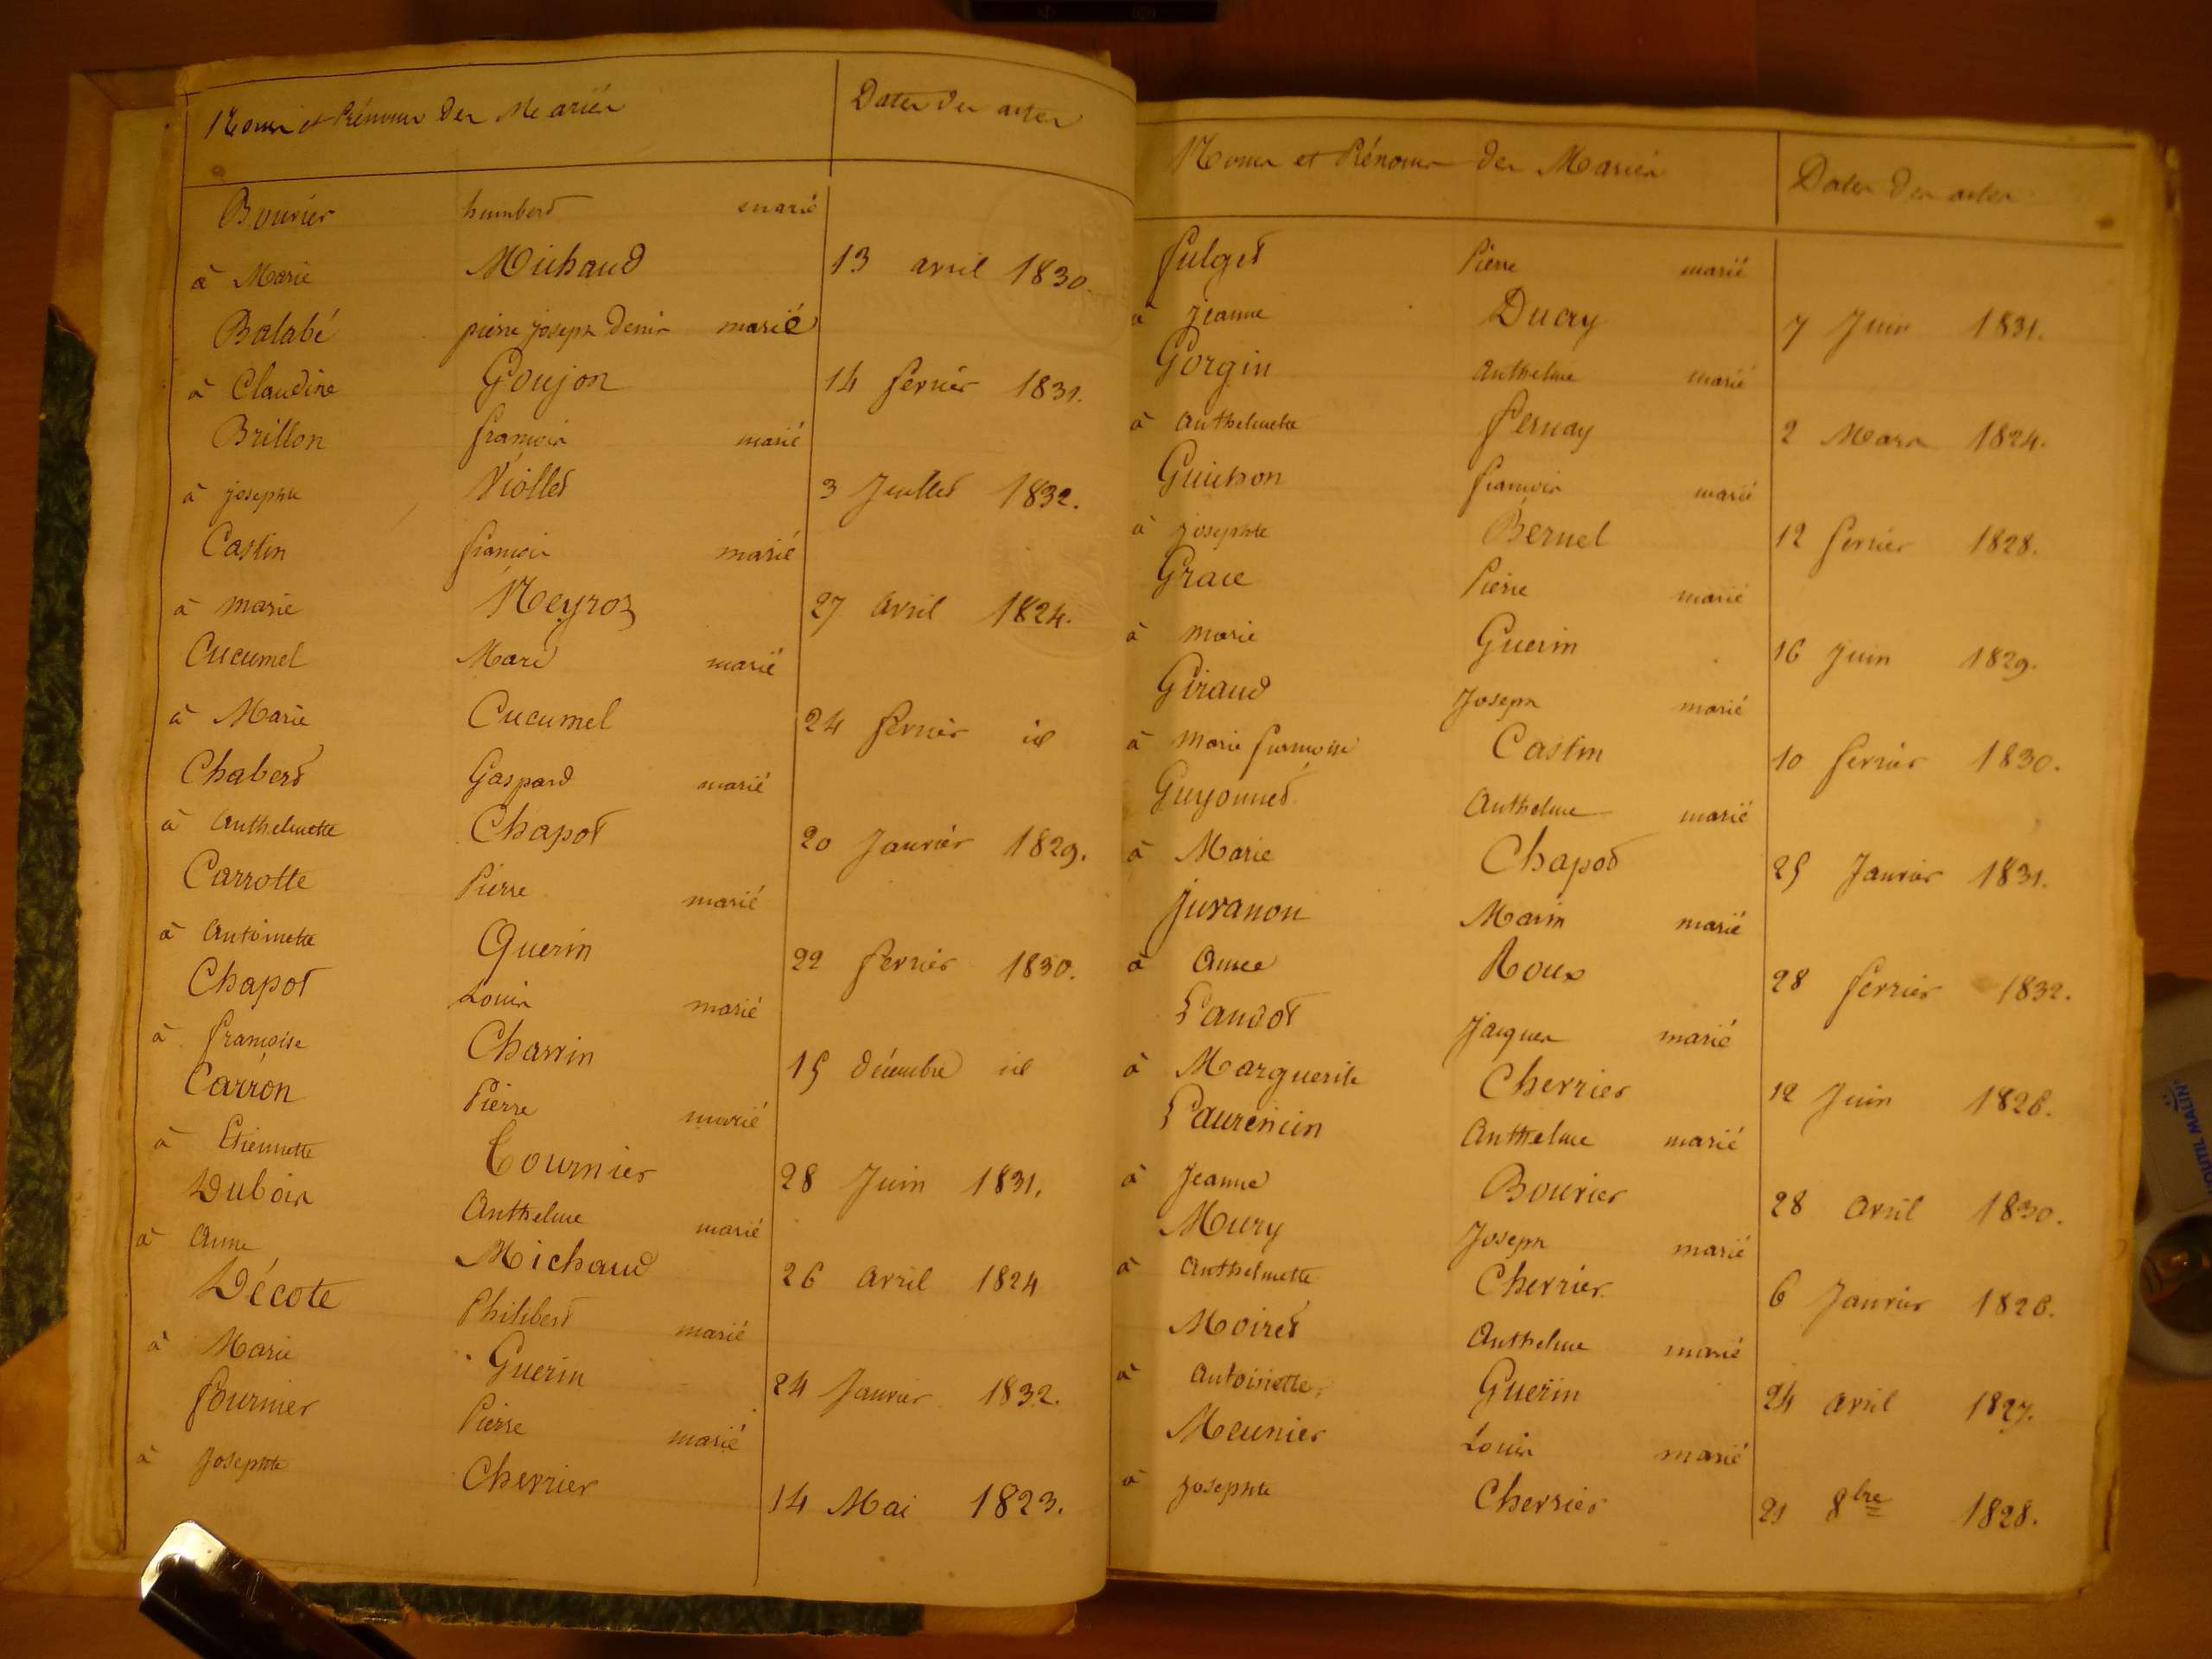 Noms et Prénoms des Mariés Dates des actes
Bouvier humbert marié
à Marie Michaud 13 avril 1830.
Balabé pierre joseph denis marié
à Claudine Goujon 14 fevrier 1831.
Brillon françois marié
à josephte Viollet 3 Juillet 1832.
Castin françois marié
à marie Neyroz 27 avril 1824.
Cucumel Marc marié
à Marie Cucumel 24 fevrier id
Chabert Gaspard marié
à anthelmette Chapot 20 Janvier 1829.
Carrotte Pierre marié
à antoinette Guerin 22 fevrier 1830.
Chapot Louis marié
à françoise Charrin 15 décembre id
Carron Pierre marié
à Etiennette Tournier 28 Juin 1831.
Dubois Anthelme marié
à anne Michaud 26 avril 1824
Décote Philibert marié
à Marie Guerin 24 Janvier 1832.
fournier Pierre marié
à Josephte Cherrier 14 Mai 1823.
Noms et Prénoms des Mariés Dates des actes
fulget Pierre marié
à jeanne Ducry 7 Juin 1831.
Gorgin anthelme marié
à anthelmette fernay 2 Mars 1824.
Guichon françois marié
à josephte Bernel 12 fevrier 1828.
Grace Pierre marié
à marie Guerin 16 juin 1829.
Giraud Joseph marié
à marie françoise Castin 10 fevrier 1830.
Guyonnet Anthelme marié
à Marie Chapot 25 Janvier 1831.
juvanon Marin marié
à anne Roux 28 fevrier 1832.
Landot jacques marié
à Marguerite Cherrier 12 Juin 1826.
Laurencin Anthelme marié
à Jeanne Bouvier 28 avril 1830.
Mury Joseph marié
à anthelmette Cherrier 6 Janvier 1826.
Moiret Anthelme marié
à antoinette Guerin 24 avril 1827.
Meunier Louis marié
à josephte Cherrier 21 8bre 1828.